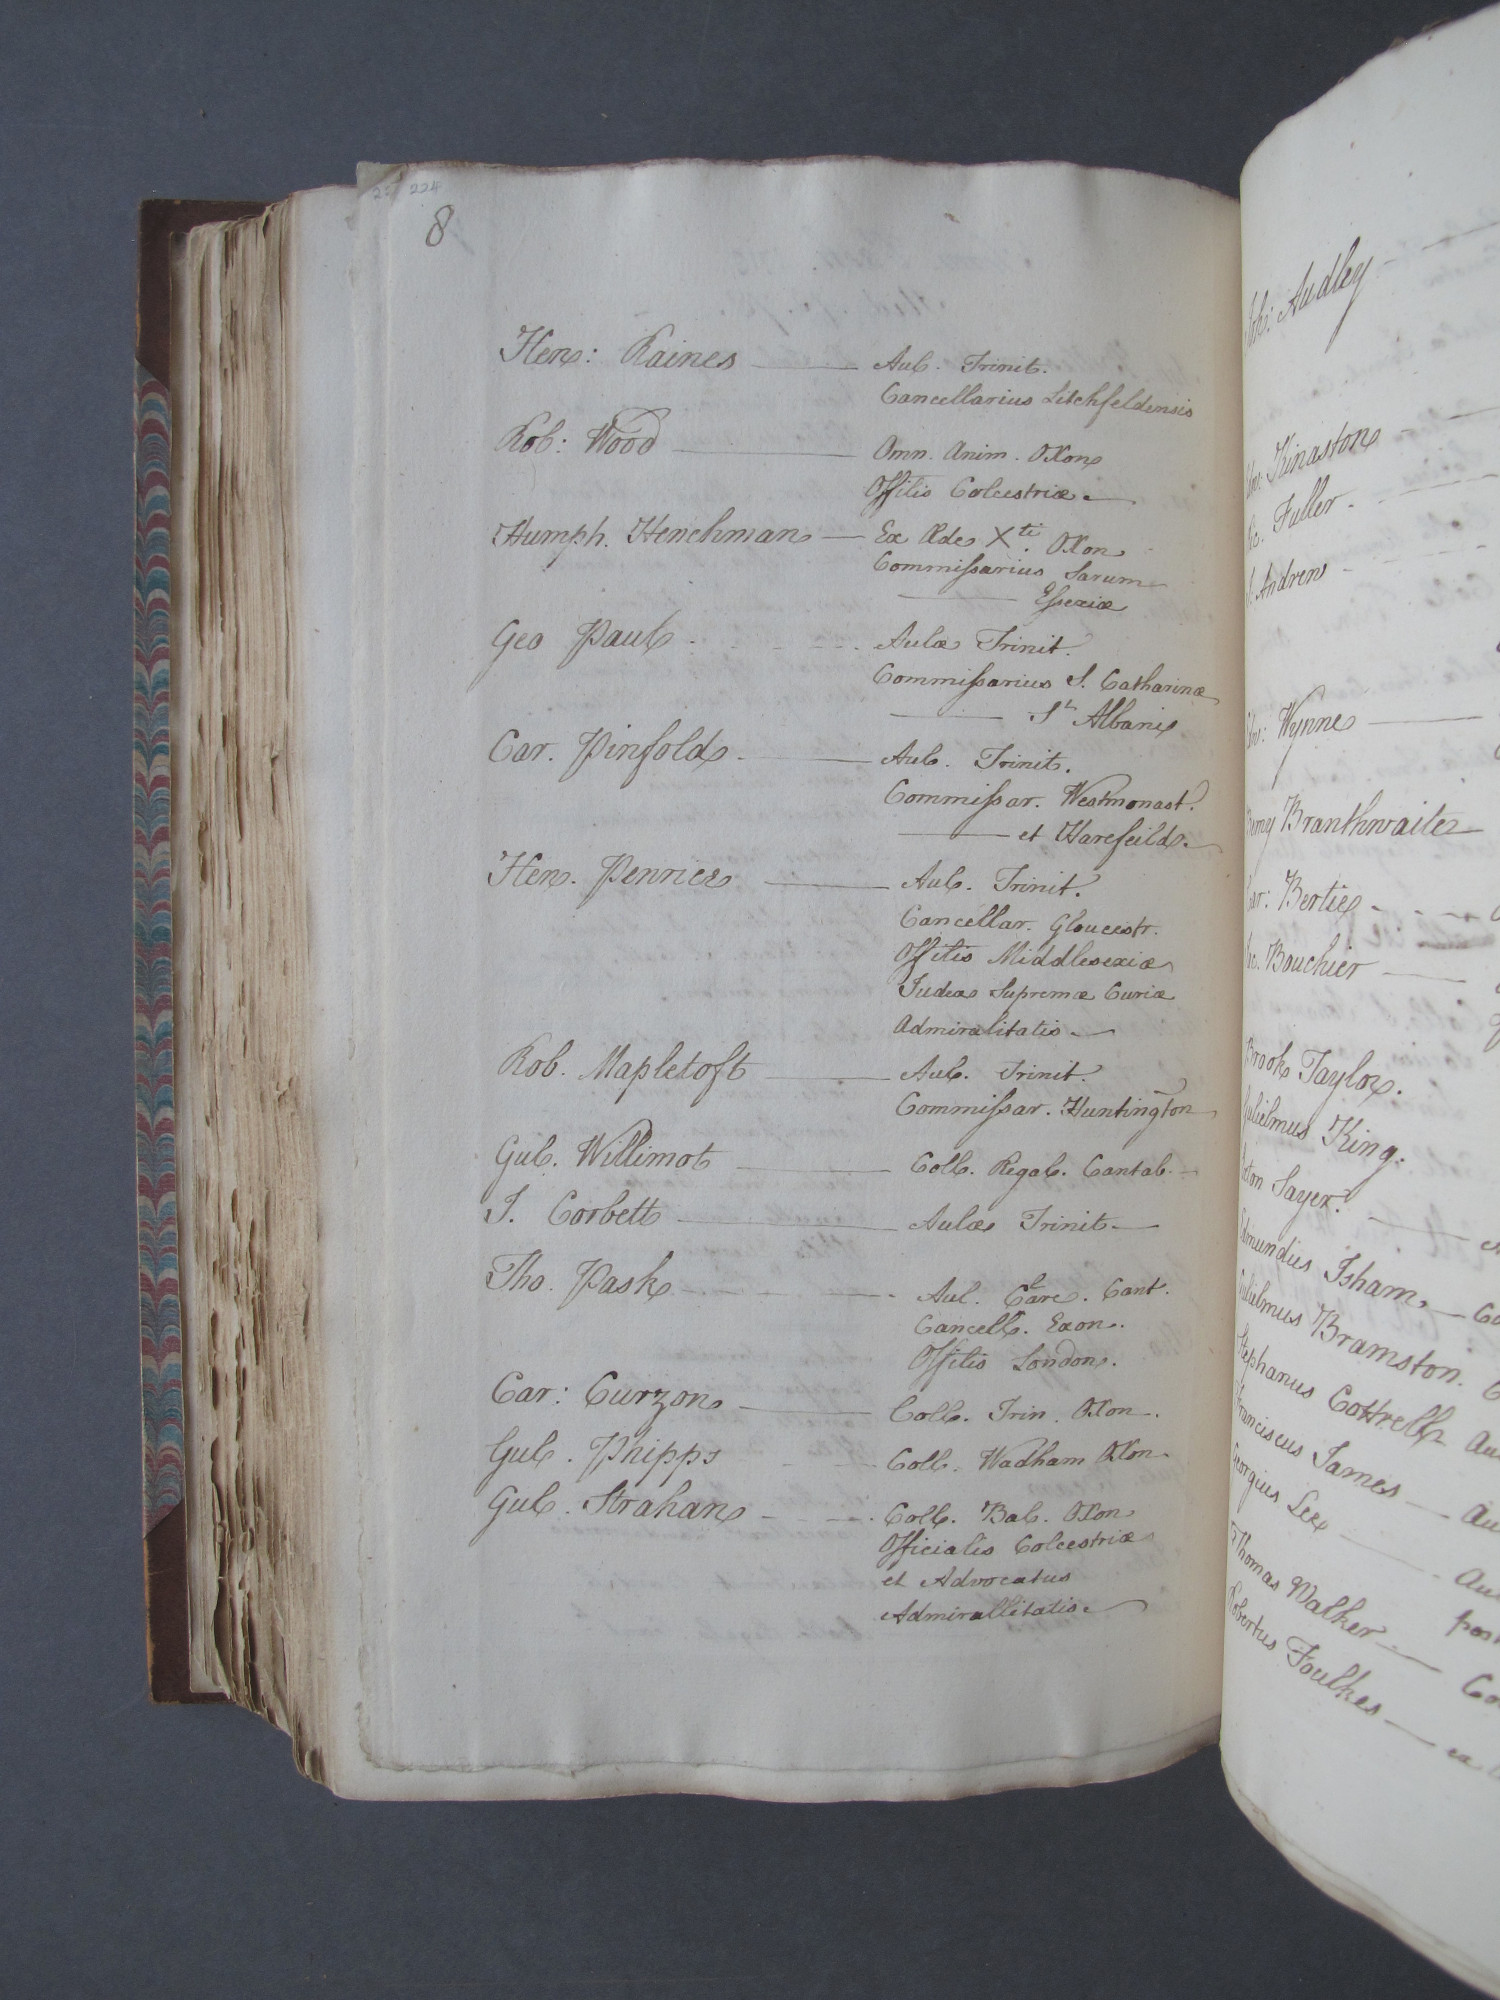 224
8
Hen: Raines — Aul. Trinit.
Cancellarius Litchfeldensis
Rob: Wood — Omn. Anim. Oxon
Offitis Colcestriæ
Humph. Henchman — Ex Æde Xti Oxon
Commissarius Sarum
— Essexiæ
Geo Paul - - - - Aulæ Trinit.
Commissarius S. Catharinæ
— St Albani
Car. Pinfold — Aul. Trinit.
Commissar. Westmonast.
— et Harefeild
Hen. Penrice — Aul. Trinit.
Cancellar. Gloucestr.
Offitis Middlesexiæ
Judex Supremæ Curiæ
Admiralitatis
Rob. Mapletoft — Aul. Trinit.
Commissar. Huntington
Gul. Willimot — Coll. Regal. Cantab.
J. Corbett — Aulæ Trinit
Tho. Pask - - - - Aul. Clare. Cant.
Cancell. Exon.
Offitis London.
Car: Curzon — Coll. Trin. Oxon.
Gul. Phipps - - Coll. Wadham Oxon
Gul. Strahan - - - Coll. Bal. Oxon
Officialis Colcestriæ
et Advocatus
Admirallitatis
Joh: Audley
Kinaston
Fuller
J. Andrew
Wynne
Branthwaite
Car: Bertie
Bouchier
Brook Taylor.
Gulielmus King.
Exton Sayer.
Edmundus Isham
Gulielmus Bramston.
Stephanus Cottrell
Franciscus James
Georgius Lee
Thomas Walker
Robertus Foulkes